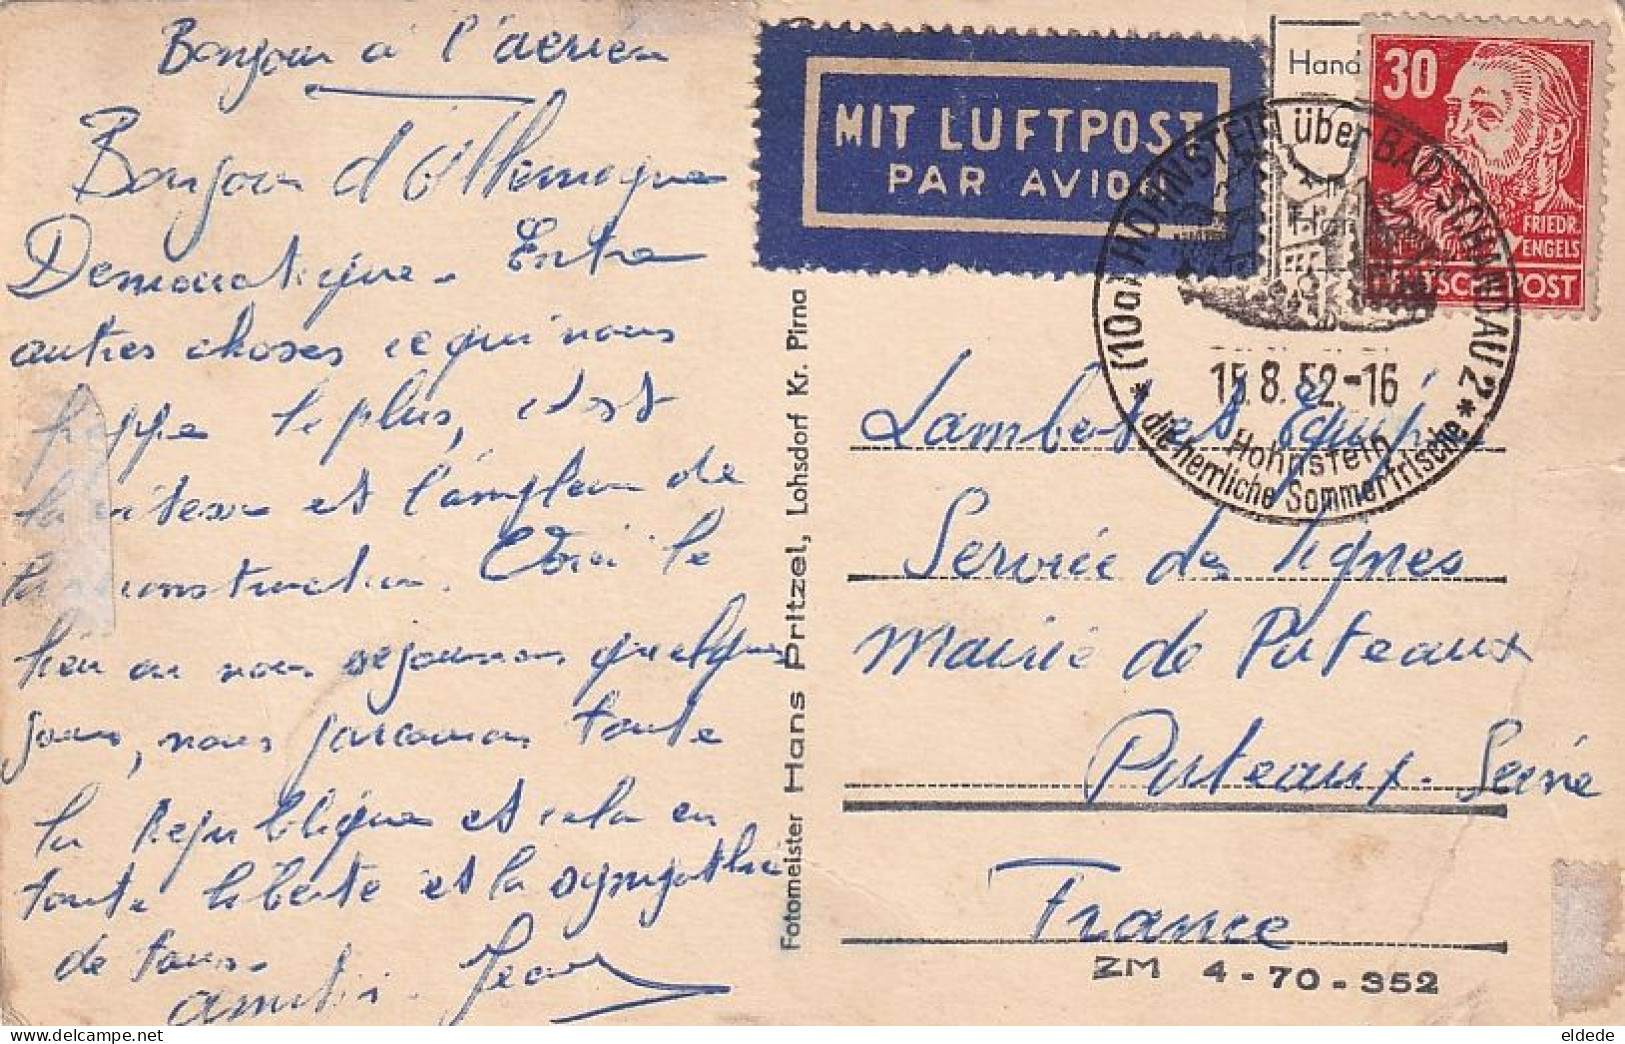 Bonjour à l'aérien
Bonjour d'Allemagne
Démocratique. Entre
autres choses ce qui nous
frappe le plus, c'est
la vitesse et l'ampleur de
la reconstruction. Voici le
lieu où nous séjournons quelques
jours, nous parcourons toute
la République et cela en
toute liberté et la sympathie
de tous.
Amitiés. Jean
Fotomeister Hans Pritzel, Lohsdorf Kr. Pirna
MIT LUFTPOST
PAR AVION
Hand
30
FRIEDR.
ENGELS
DEUTSCHE POST
(10a) HOHNSTEIN über BAD SCHANDAU 2
15.8.52.-16
Hohnstein
die herrliche Sommerfrische
Lambert et Equipe
Service des lignes
Mairie de Puteaux
Puteaux. Seine
France
ZM 4-70-352
eldede